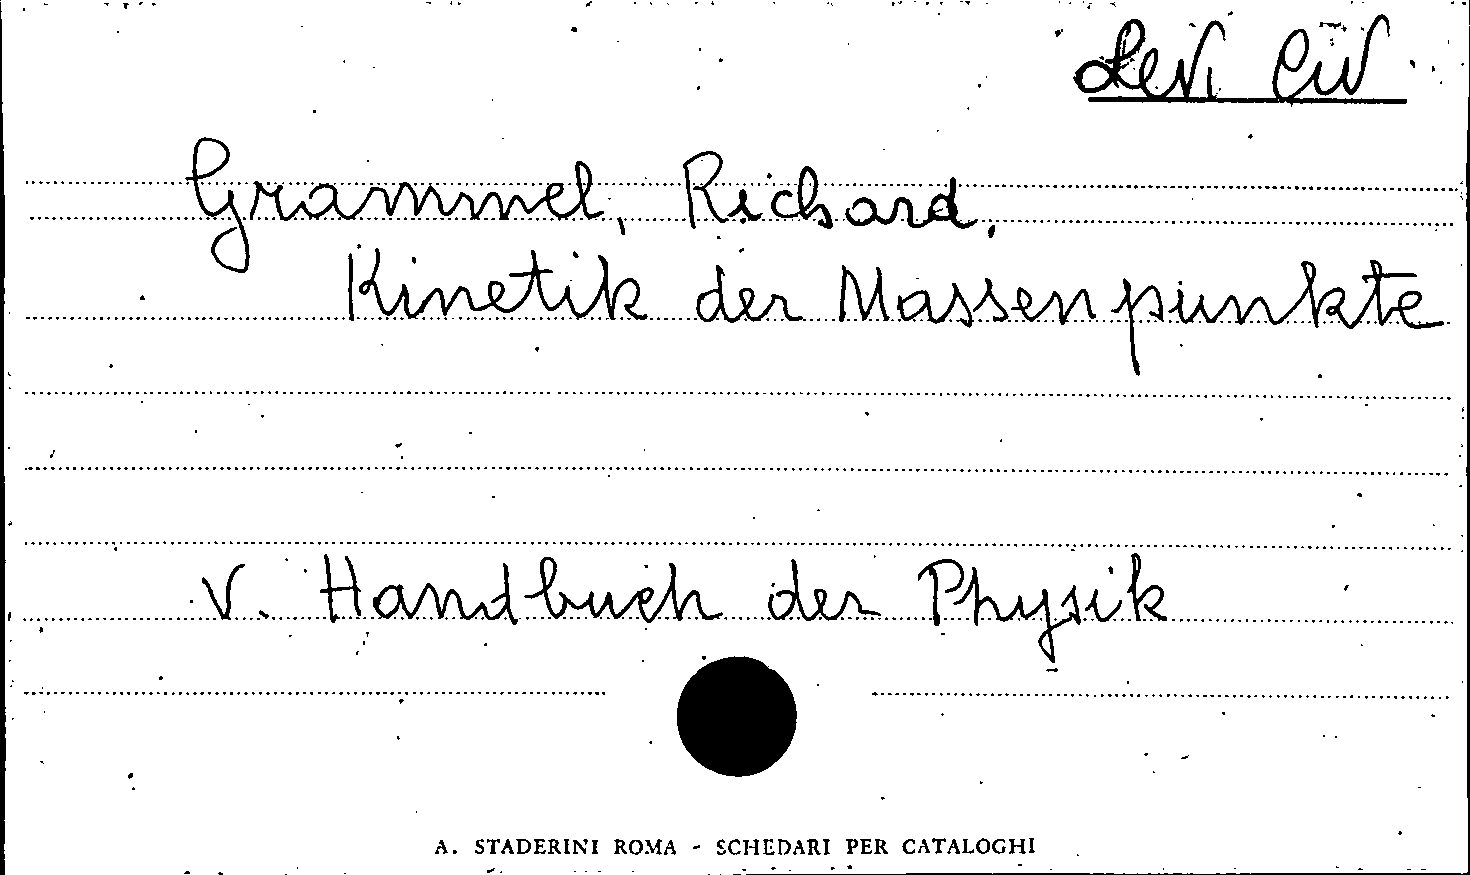 Levi Civ
Grammel, Richard,
Kinetik der Massenpunkte
v. Handbuch der Physik
A. STADERINI ROMA - SCHEDARI PER CATALOGHI